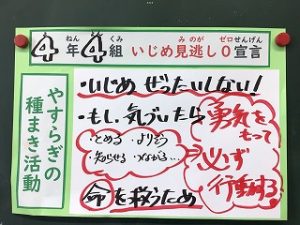 4年4組 いじめ見逃し0宣言
ねん くみ みのが ゼロせんげん
やすらぎの
種まき活動
・いじめ ぜったいしない!
・もし、気づいたら
・とめる ・よりそう
・知らせる ・つながる…
命を救うため
勇気を
もって
必ず
行動する!